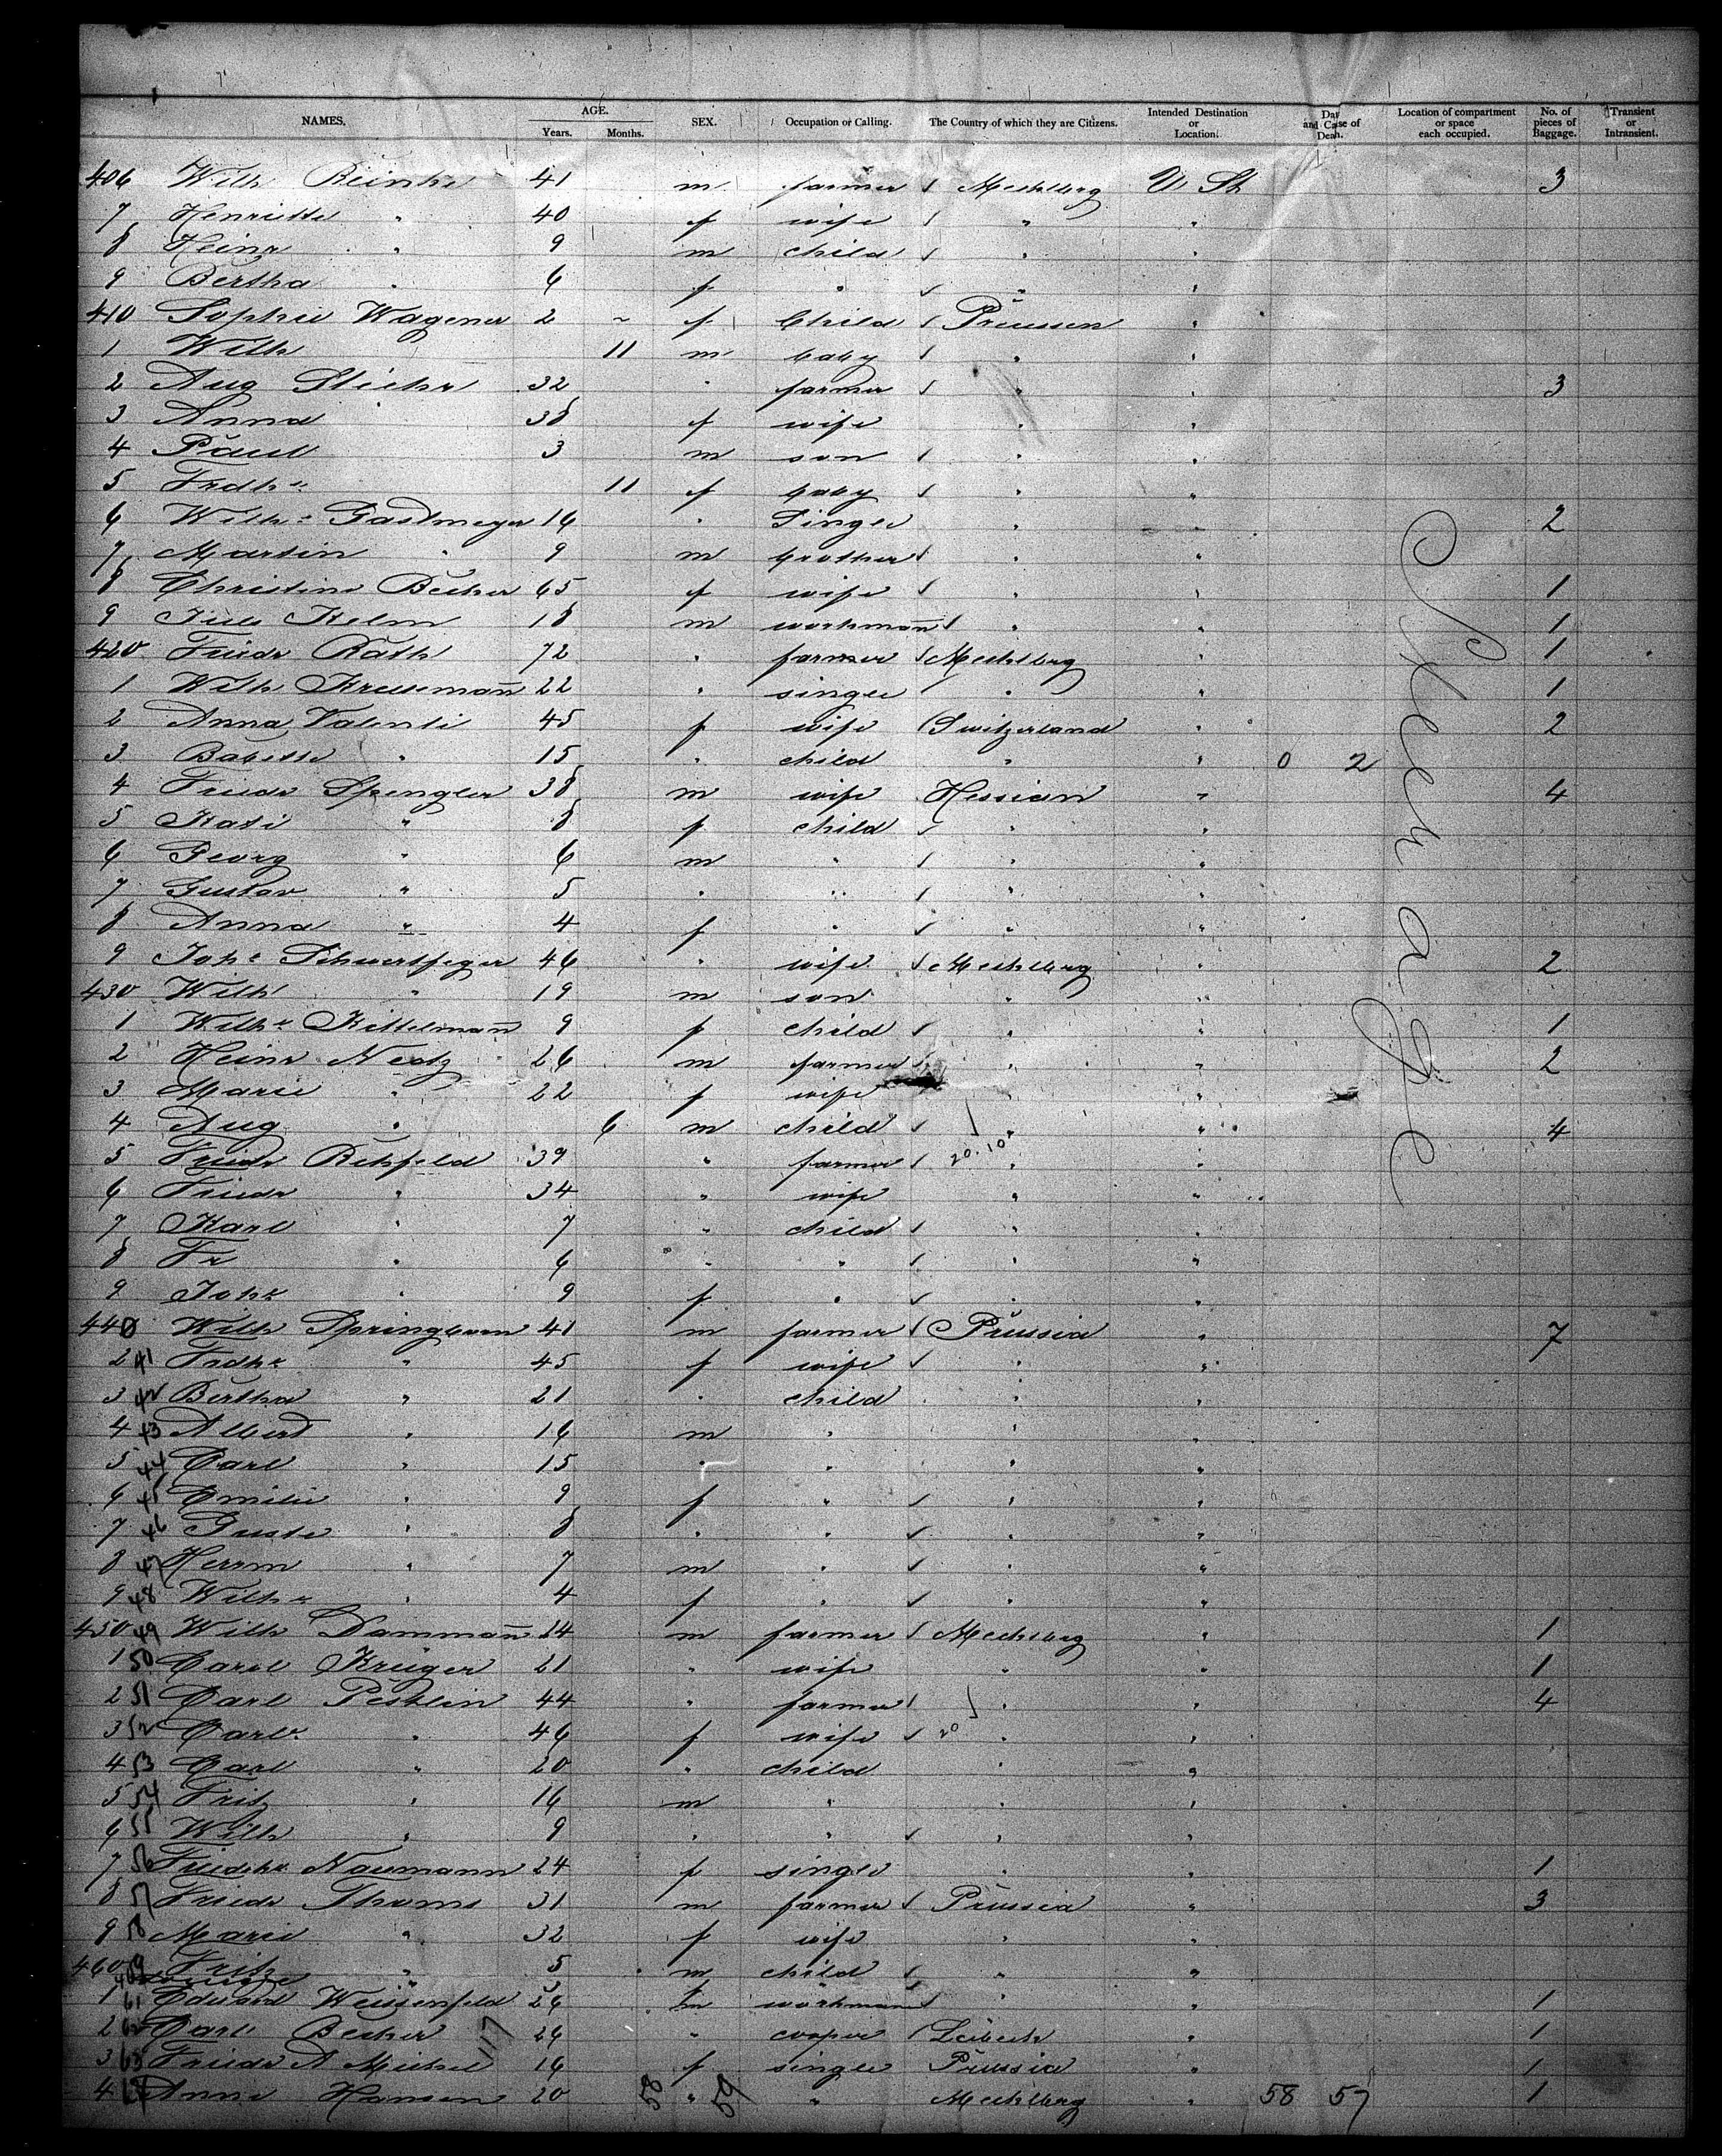 NAMES. AGE. Years. Months. SEX. Occupation or Calling. The Country of which they are Citizens. Intended Destination or Location. Date and Cause of Death. Location of compartment or space each occupied. No. of pieces of Baggage. Transient or Intransient.
406 Wilh Reinke 41 m farmer Mecklbrg U St 3
7 Henriette " 40 f wife " "
8 Heinr " 9 m child " "
9 Bertha " 6 f " " "
410 Sophie Wagener 2 ~ f Child Preussen "
1 Wilh 11 m baby " "
2 Aug 32 " farmer " " 3
3 Anna 38 f wife " "
4 Paul 3 m son " "
5 Frdke 11 f baby " "
6 Wilhe Gastmeyer 16 " Single " 2
7 Martin " 9 m brother " "
8 Christine Becker 65 f wife " " 1
9 Kelm 18 m workman " " 1
420 Friedr Rath 72 " farmer Mecklbrg " 1
1 Wilh 22 " single " " 1
2 Anna Valenti 45 f wife Switzerland " 2
3 Babette " 15 " child " " 0 2
4 Friedr Spengler 38 m wife Hessian " 4
5 Kati " 8 f child " "
6 Georg " 6 m " " "
7 Gustav " 5 " " " "
8 Anna " 4 f " " "
9 Johe Schwertfeger 46 " wife Mecklbrg " 2
430 Wilh " 19 m son " "
1 Wilhe Kittelmann 9 f child " " 1
2 Heinr 26 m farmer " " 2
3 Marie " 22 f wife " "
4 Aug " 6 m child " " 4
5 Friedr Rehfeld 39 " farmer 20.10 " "
6 Friedr " 34 " wife " "
7 Karl " 7 " child " "
8 Fr " 6 " " " "
9 Johe " 9 f " " "
440 Wilh Springborn 41 m farmer Prussia " 7
2 41 Frdke " 45 f wife " "
3 42 Bertha " 21 " child " "
4 43 Albert " 16 m " " "
5 44 Carl " 15 " " " "
6 45 Emilie " 9 f " " "
7 46 Guste " 8 " " " "
8 47 Herrm " 7 m " " "
9 48 Wilhe " 4 f " " "
450 49 Wilh Dammann 24 m farmer Mecklbrg " 1
1 50 Carol Krüger 21 " wife " " 1
2 51 Carl Peshlin 44 " farmer " " 4
3 52 Carle " 46 f wife 20 " "
4 53 Carl " 20 " child " "
5 54 Fritz " 16 m " " "
6 55 Wilh " 9 " " " "
7 56 Friedke Naumann 24 f single " " 1
8 57 Friedr Thoms 31 m farmer Prussia " 3
9 58 Marie " 32 f wife " "
460 59 Fritz " 5 m child " "
1 61 Eduard Weissenfeld 26 m workman " " 1
2 62 Carl Becker 117 26 " cooper Lübeck " 1
3 63 Friedr A Michel 16 f single Prussia " 1
4 64 Anna Hansen 20 58 " 59 " Mecklbrg " 58 57 1
Steerage